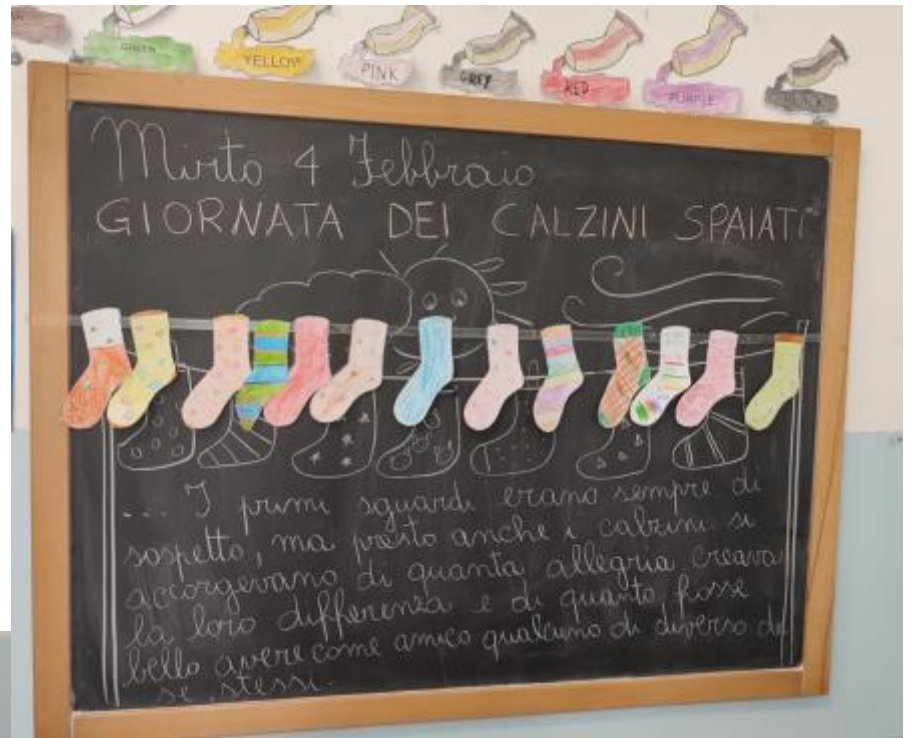 GREEN
YELLOW
PINK
GREY
RED
PURPLE
Mirto 4 Febbraio
GIORNATA DEI CALZINI SPAIATI
... I primi sguardi erano sempre di
sospetto, ma presto anche i calzini si
accorgevano di quanta allegria creava
la loro differenza e di quanto fosse
bello avere come amico qualcuno di diverso da
se stessi.